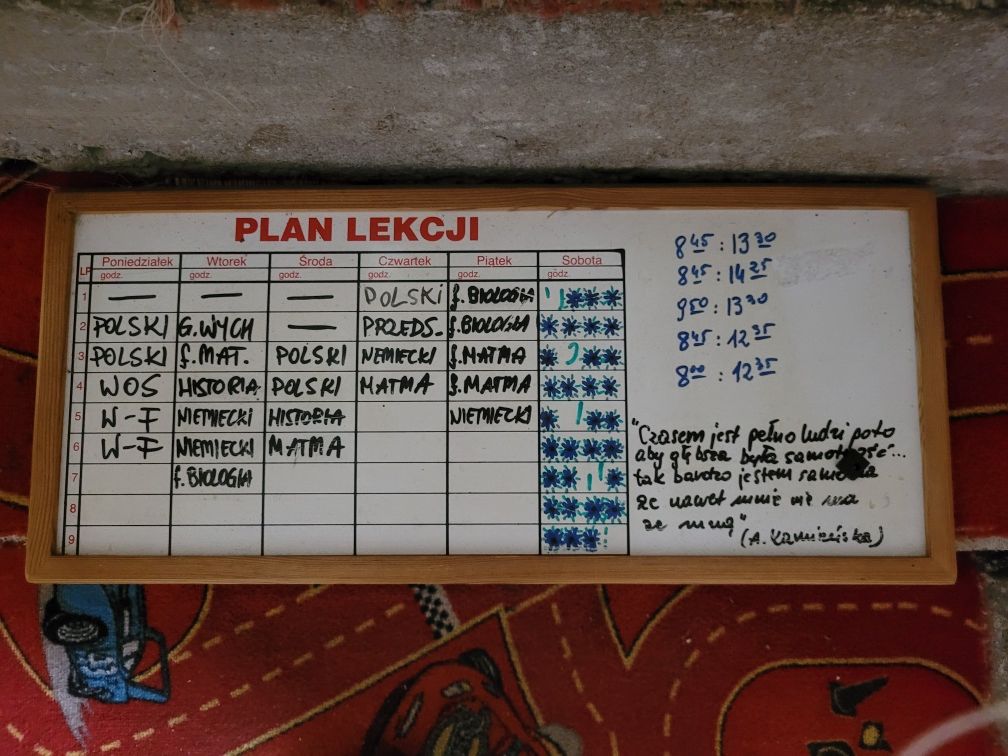 PLAN LEKCJI
LP Poniedziałek Wtorek Środa Czwartek Piątek Sobota
godz. godz. godz. godz. godz. godz.
1 — — — POLSKI f. BIOLOGIA
2 POLSKI G. WYCH — PRZEDS. f. BIOLOGIA
3 POLSKI f. MAT. POLSKI NIEMIECKI f. MATMA
4 WOS HISTORIA POLSKI MATMA f. MATMA
5 W-F NIEMIECKI HISTORIA NIEMIECKI
6 W-F NIEMIECKI MATMA
7 f. BIOLOGIA
8
9
8 45 : 13 30
8 45 : 14 25
9 50 : 13 30
8 45 : 12 35
8 00 : 12 35
"Czasem jest pełno ludzi po to
aby głębsza była samotność...
tak bardzo jestem
że nawet mnie nie ma
ze mną"
(A. Kamieńska)